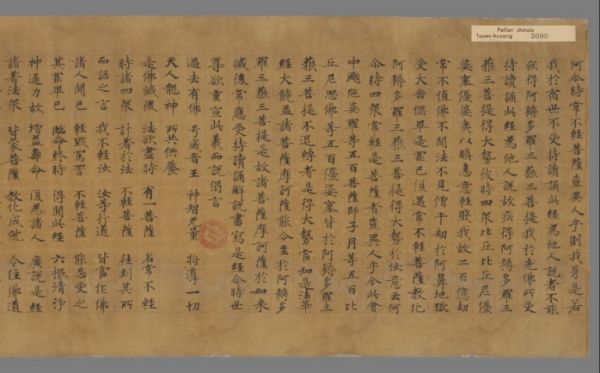 Pelliot chinois
Touen-houang 2090
何尒時常不輕菩薩豈異人乎則我身是若
我於宿世不受持讀誦此經為他人說者不能
疾得阿耨多羅三藐三菩提我於先佛所受
持讀誦此經為他人說故疾得阿耨多羅三
藐三菩提得大勢彼時四眾比丘比丘尼優
婆塞優婆夷以瞋恚意輕賤我故二百億劫
常不值佛不聞法不見僧千劫於阿鼻地獄
受大苦惱畢是罪已復遇常不輕菩薩教化
阿耨多羅三藐三菩提得大勢於汝意云何
尒時四眾常輕是菩薩者豈異人乎今此會
中颰陀婆羅等五百菩薩師子月等五百比
丘尼思佛等五百優婆塞皆於阿耨多羅三
藐三菩提不退轉者是得大勢當知是法華
經大饒益諸菩薩摩訶薩能令至於阿耨多
羅三藐三菩提是故諸菩薩摩訶薩於如來
滅後常應受持讀誦解說書寫是經尒時世
尊欲重宣此義而說偈言
過去有佛 号威音王 神智无量 將導一切
天人龍神 所共供養
是佛滅後 法欲盡時 有一菩薩 名常不輕
時諸四眾 計著於法 不輕菩薩 往到其所
而語之言 我不輕汝 汝等行道 皆當作佛
諸人聞已 輕毀罵詈 不輕菩薩 能忍受之
其罪畢已 臨命終時 得聞此經 六根清淨
神通力故 增益壽命 復為諸人 廣說是經
諸著法眾 皆蒙菩薩 教化成就 令住佛道